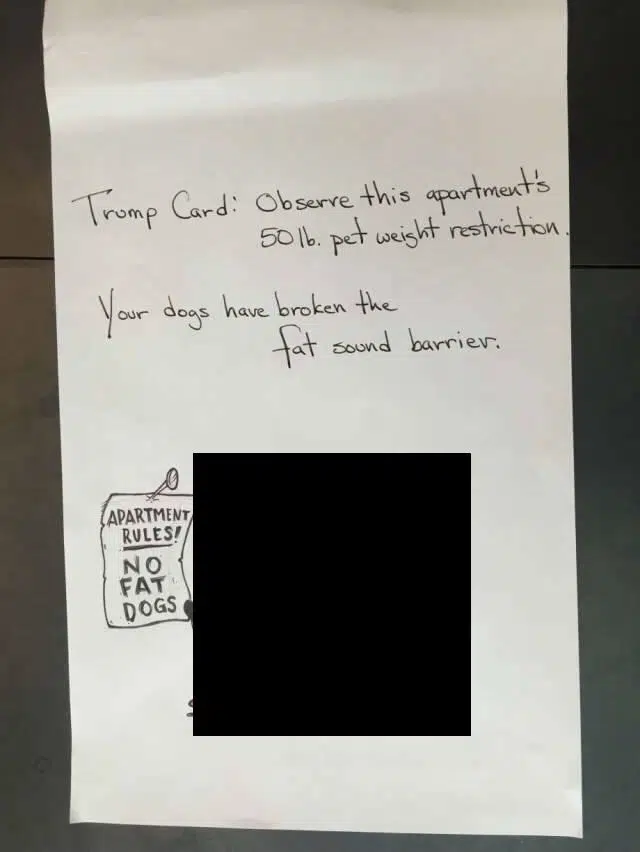 Trump Card: Observe this apartment's
50 lb. pet weight restriction.
Your dogs have broken the
fat sound barrier.
APARTMENT
RULES!
NO
FAT
DOGS